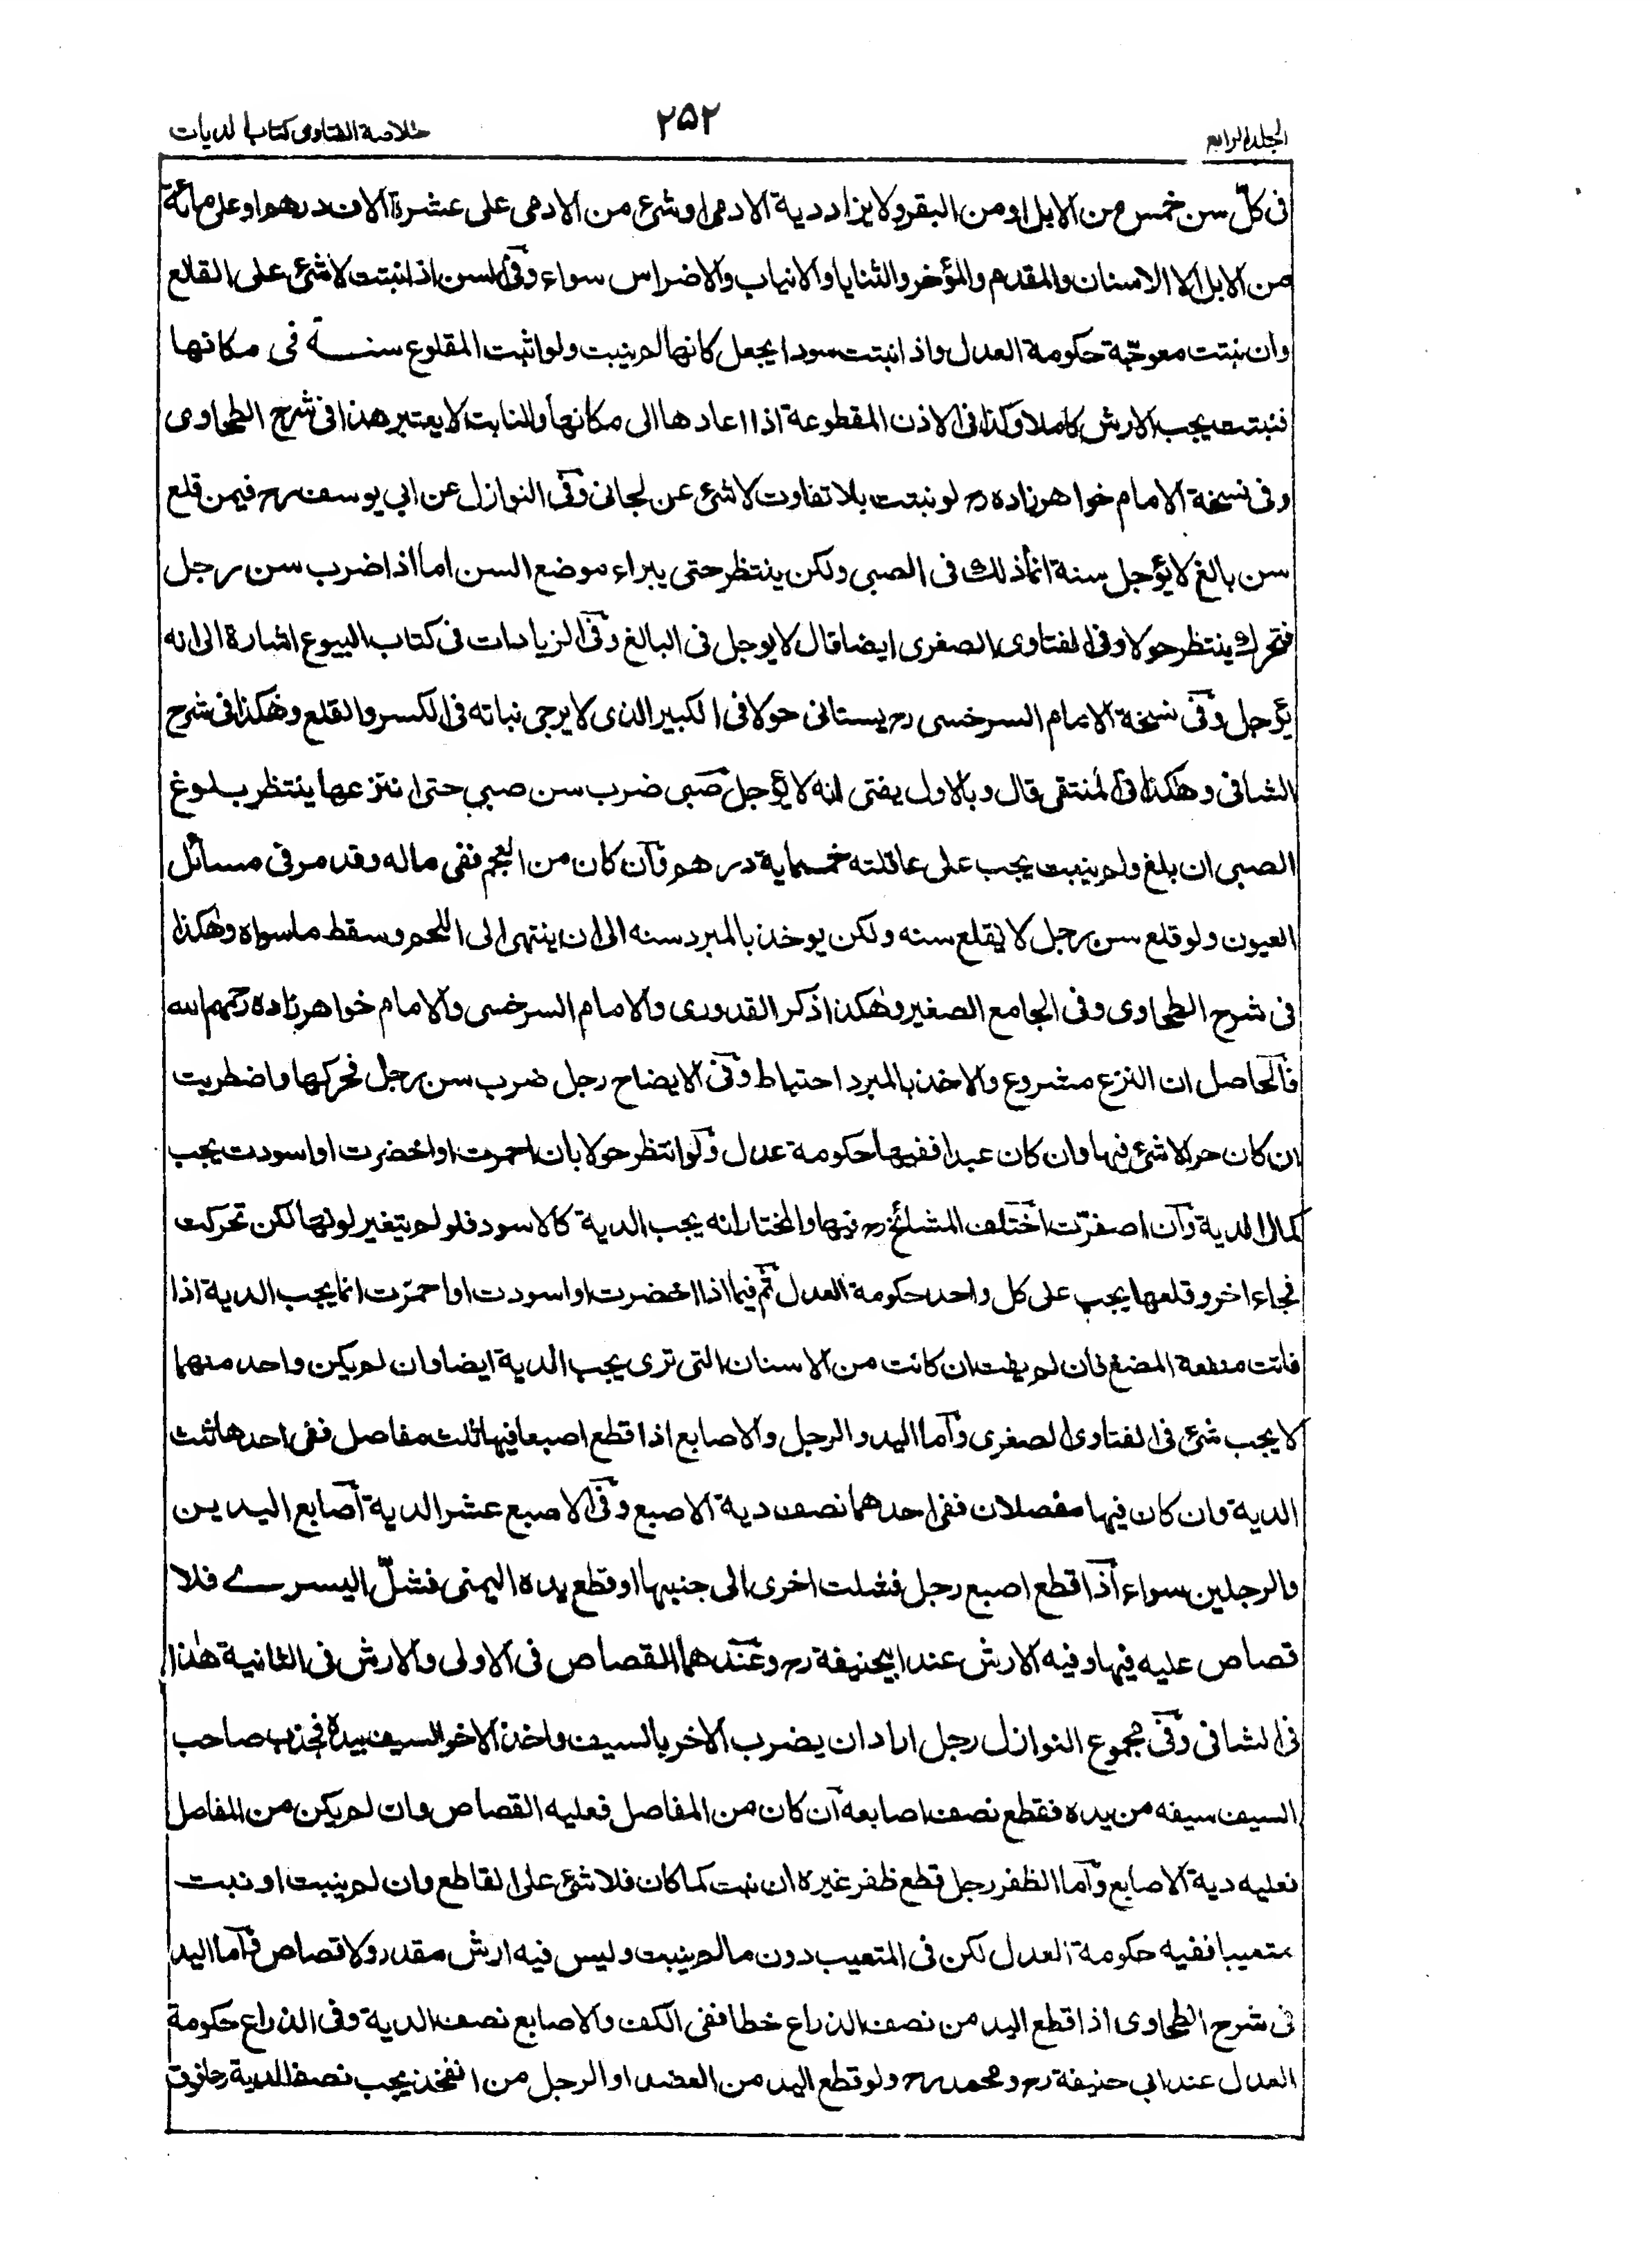 الجلد الرابع
۲۵۲
خلاصة الفتاوى كتاب الديات
فى كلّ سن خمس من الابل او من البقر ولا يزاد دية الادمى او شئ من الادمى على عشرة الاف درهم او على مائة
من الابل الا الاسنان والمقدم والمؤخر والثنايا والانياب والاضراس سواء وفى السن اذا نبتت لا شئ على القالع
وان نبتت معوجّة حكومة العدل واذا نبتت سودا يجعل كانها لم ينبت ولو اثبت المقلوع سنة فى مكانها
فنبتت يجب الارش كاملا وكذا فى الاذن المقطوعة اذا اعادها الى مكانها والنابت لا يعتبر هذا فى شرح الطحاوى
وفى نسخة الامام خواهرزاده رح لو نبتت بلا تفاوت لا شئ عن لجانى وفى النوازل عن ابي يوسف رح فيمن قلع
سن بالغ لا يؤجل سنة انما ذلك فى الصبى ولكن ينتظر حتى يبراء موضع السن اما اذا ضرب سن رجل
فتحرك ينتظر حولا وفى الفتاوى الصغرى ايضا قال لا يوجل فى البالغ وفى الزيادات فى كتاب البيوع اشارة الى انه
يؤجل وفى نسخة الامام السرخسى رح يستانى حولا فى الكبير الذى لا يرجى نباته فى الكسر والقلع وهكذا فى شرح
الشافى وهكذا فى المنتقى قال وبالاول يفتى انه لا يؤجل صبى ضرب سن صبي حتى انتزعها ينتظر بلوغ
الصبى ان بلغ ولم ينبت يجب على عاقلته خمسماية درهم وان كان من العجم ففى ماله وقد مر فى مسائل
العيون ولو قلع سن رجل لا يقلع سنه ولكن يوخذ بالمبرد سنه الى ان ينتهى الى اللحم وسقط ما سواه وهكذا
فى شرح الطحاوى وفى الجامع الصغير وهكذا ذكر القدورى والامام السرخسى والامام خواهرزاده رحمهم الله
فالحاصل ان النزع مشروع والاخذ بالمبرد احتياط وفى الايضاح رجل ضرب سن رجل فحركها واضطربت
ان كان حرا لا شئ فيها وان كان عبدا ففيها حكومة عدل ولو انتظر حولا بان احمرت او اخضرت او اسودت يجب
كمال الدية وان اصفرّت اختلف المشائخ رح فيها والمختار انه يجب الدية كالاسود فلو لم يتغير لونها لكن تحركت
فجاء اخر وقلعها يجب على كل واحد حكومة العدل ثم فيما اذا اخضرت او اسودت او احمرّت انما يجب الدية اذا
فاتت منفعة المضغ فان لم يفت ان كانت من الاسنان التى ترى يجب الدية ايضا وان لم يكن واحد منهما
لا يجب شئ فى الفتاوى الصغرى واما اليد والرجل والاصابع اذا قطع اصبعا فيها ثلث مفاصل ففى احدها ثلث
الدية وان كان فيها مفصلان ففى احدهما نصف دية الاصبع وفى الاصبع عشر الدية اصابع اليدين
والرجلين سواء اذا قطع اصبع رجل فشلت اخرى الى جنبها او قطع يده اليمنى فشلّ اليسرے فلا
قصاص عليه فيها وفيه الارش عند ابيحنيفة رح وعندهما القصاص فى الاولى والارش فى الثانية هذا
فى الشافى وفى مجموع النوازل رجل اراد ان يضرب الاخر بالسيف واخذ الاخر السيف بيده فجذب صاحب
السيف سيفه من يده فقطع نصف اصابعه ان كان من المفاصل فعليه القصاص وان لم يكن من المفاصل
فعليه دية الاصابع واما الظفر رجل قطع ظفر غيره ان نبت كما كان فلا شئ على القاطع وان لم ينبت او نبت
متعيبا ففيه حكومة العدل لكن فى المتعيب دون ما لم ينبت وليس فيه ارش مقدر ولا قصاص واما اليد
فى شرح الطحاوى اذا قطع اليد من نصف الذراع خطا ففى الكف والاصابع نصف الدية وفى الذراع حكومة
العدل عند ابي حنيفة رح ومحمد رح ولو قطع اليد من العضد او الرجل من الفخذ يجب نصف الدية وما فوق